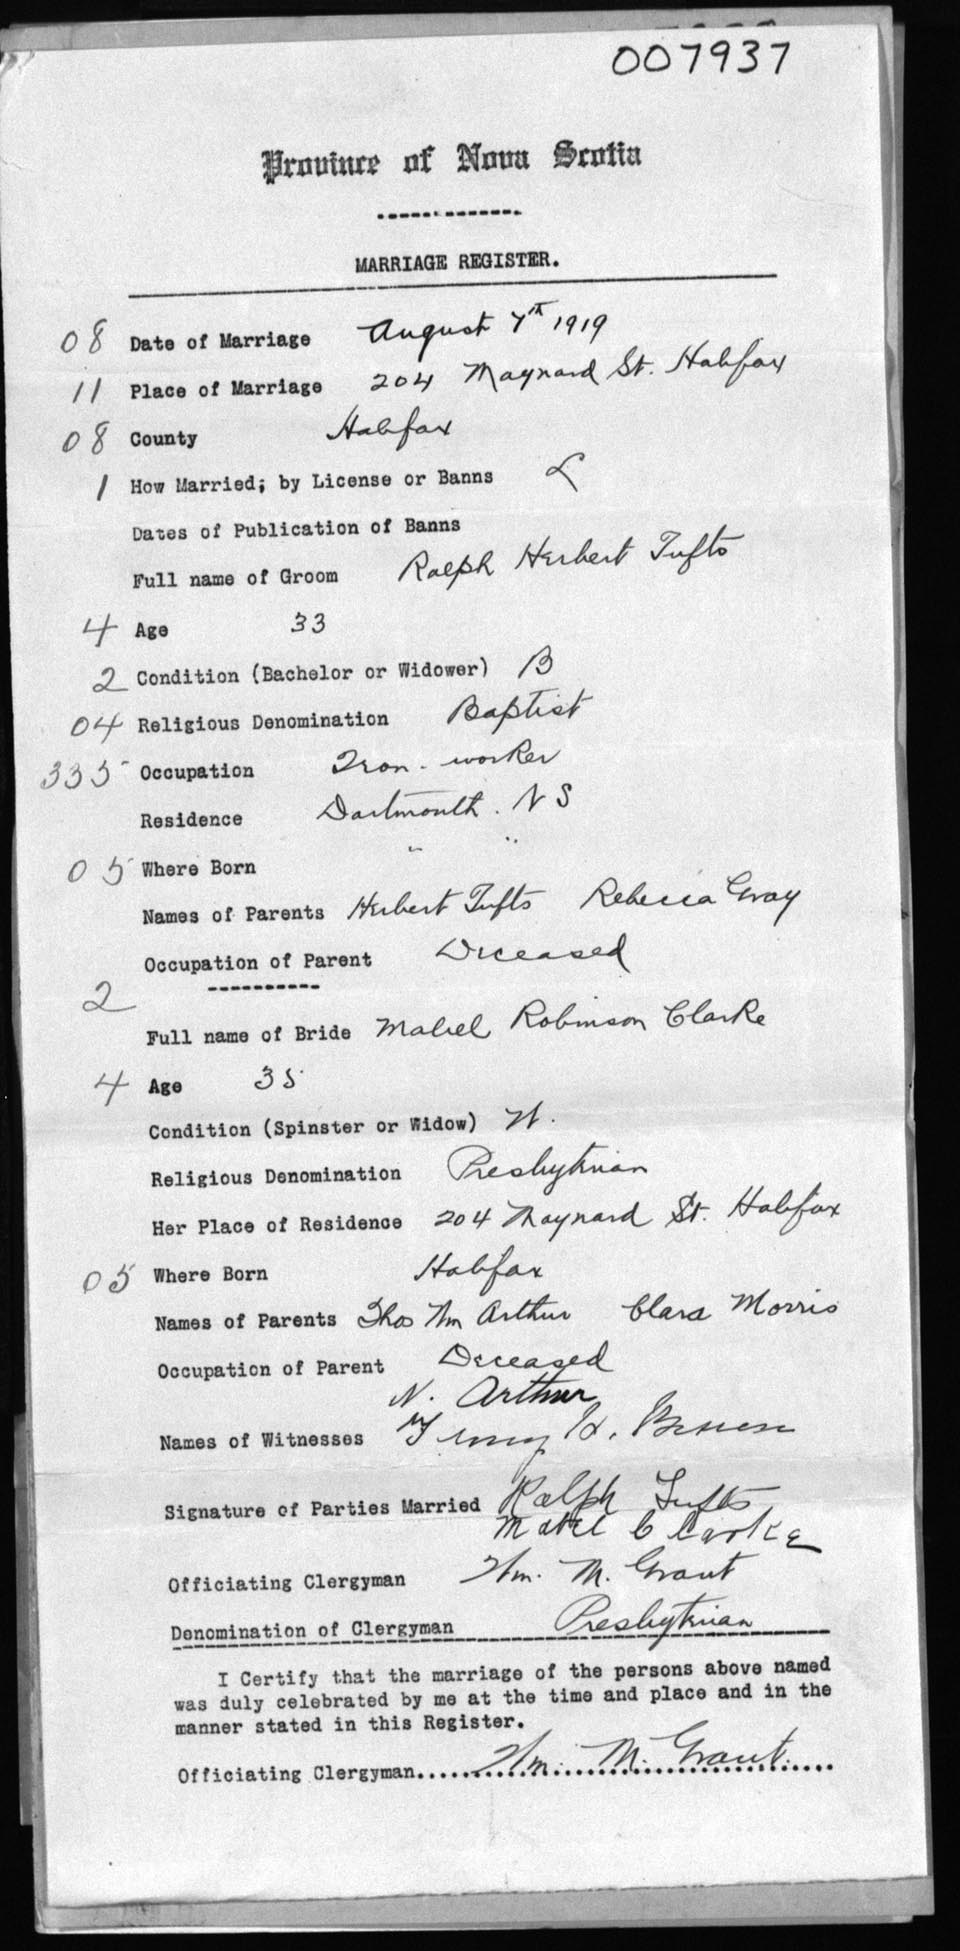 007937
Province of Nova Scotia
MARRIAGE REGISTER.
08 Date of Marriage August 7th 1919
11 Place of Marriage 204 Maynard St. Halifax
08 County Halifax
1 How Married; by License or Banns L
Dates of Publication of Banns
Full name of Groom Ralph Herbert Tufts
4 Age 33
2 Condition (Bachelor or Widower) B
04 Religious Denomination Baptist
335 Occupation Iron-worker
Residence Dartmouth. N S
05 Where Born " "
Names of Parents Herbert Tufts Rebecca Gray
Occupation of Parent Deceased
2
Full name of Bride Mabel Robinson Clarke
4 Age 35
Condition (Spinster or Widow) W.
Religious Denomination Presbyterian
Her Place of Residence 204 Maynard St. Halifax
05 Where Born Halifax
Names of Parents Thos Wm Arthur Clara Morris
Occupation of Parent Deceased
N. Arthur
Names of Witnesses H.
Signature of Parties Married Ralph Tufts
Mabel Clarke
Officiating Clergyman Wm. M. Grant
Denomination of Clergyman Presbyterian
I Certify that the marriage of the persons above named
was duly celebrated by me at the time and place and in the
manner stated in this Register.
Officiating Clergyman Wm. M. Grant.